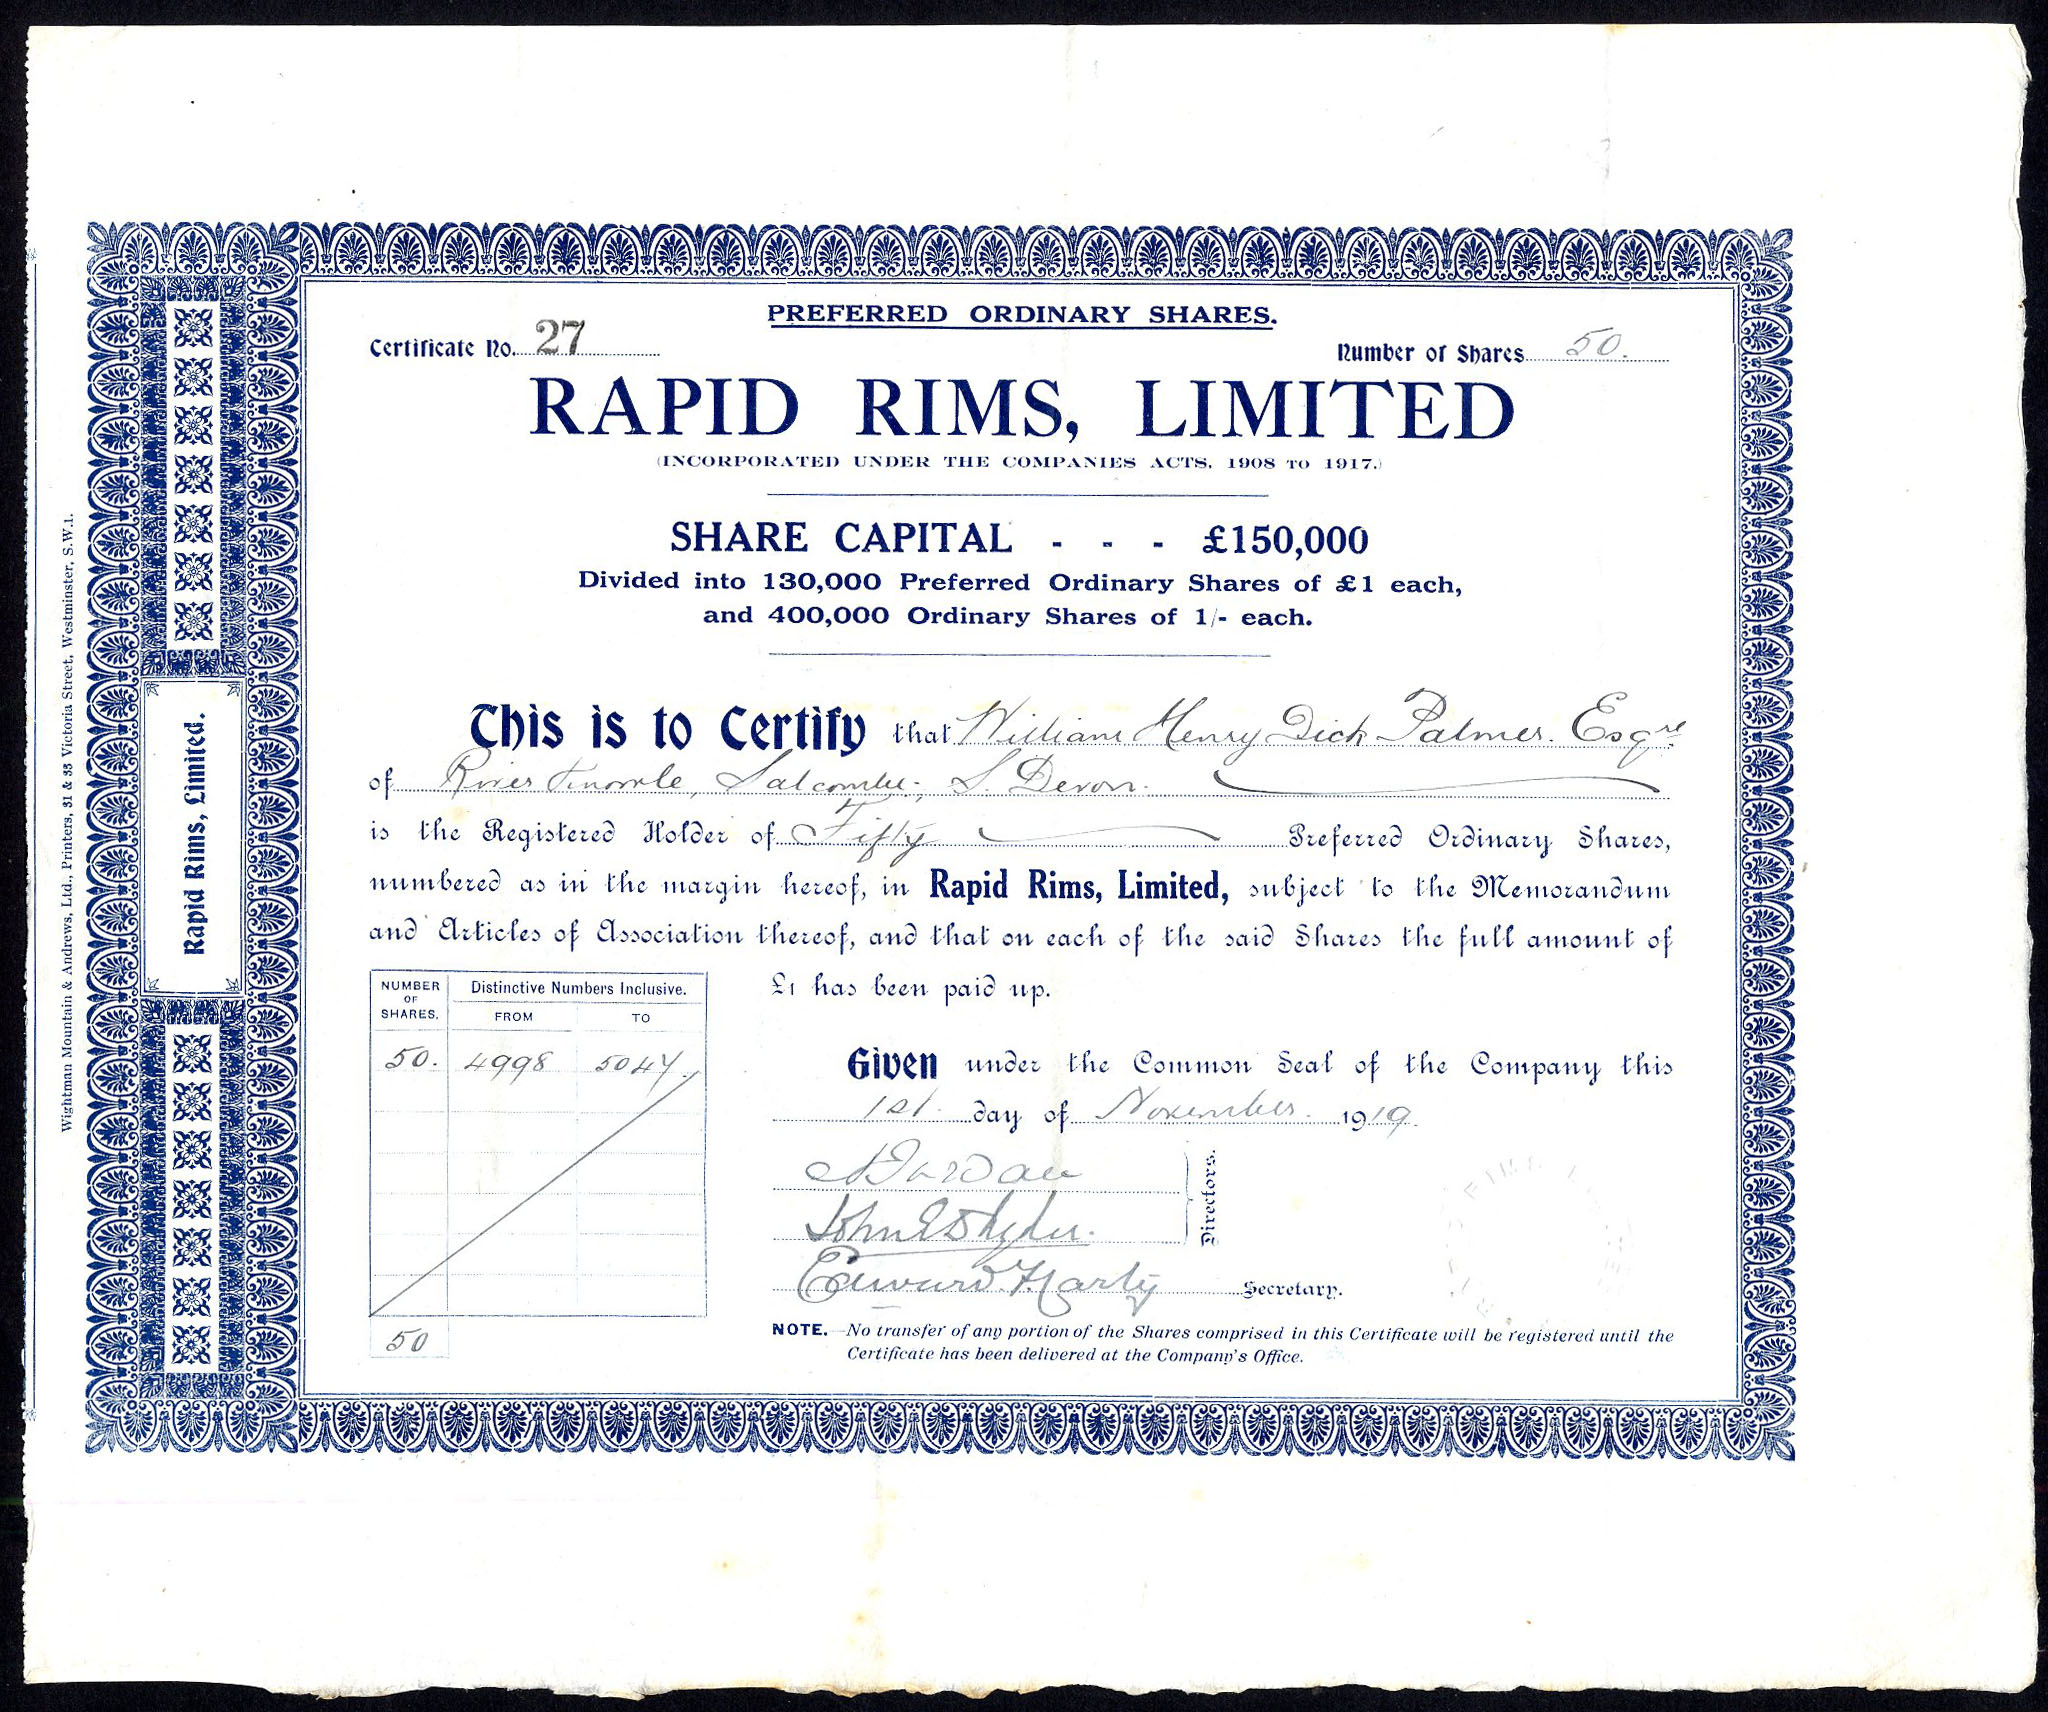 PREFERRED ORDINARY SHARES.
Certificate No. 27
Number of Shares 50.
RAPID RIMS, LIMITED
(INCORPORATED UNDER THE COMPANIES ACTS, 1908 TO 1917.)
SHARE CAPITAL - - - £150,000
Divided into 130,000 Preferred Ordinary Shares of £1 each,
and 400,000 Ordinary Shares of 1/- each.
This is to Certify that William Henry Dick Palmer. Esqre
of River Knowle, Salcombe, S. Devon.
is the Registered Holder of Fifty Preferred Ordinary Shares,
numbered as in the margin hereof, in Rapid Rims, Limited, subject to the Memorandum
and Articles of Association thereof, and that on each of the said Shares the full amount of
£1 has been paid up.
NUMBER OF SHARES. Distinctive Numbers Inclusive.
FROM TO
50. 4998 5047
50
Given under the Common Seal of the Company this
1st day of November 1919.
Directors.
Edward Harty Secretary.
NOTE.—No transfer of any portion of the Shares comprised in this Certificate will be registered until the
Certificate has been delivered at the Company's Office.
Rapid Rims, Limited.
Wightman Mountain & Andrews, Ltd., Printers, 31 & 33 Victoria Street, Westminster, S.W.1.